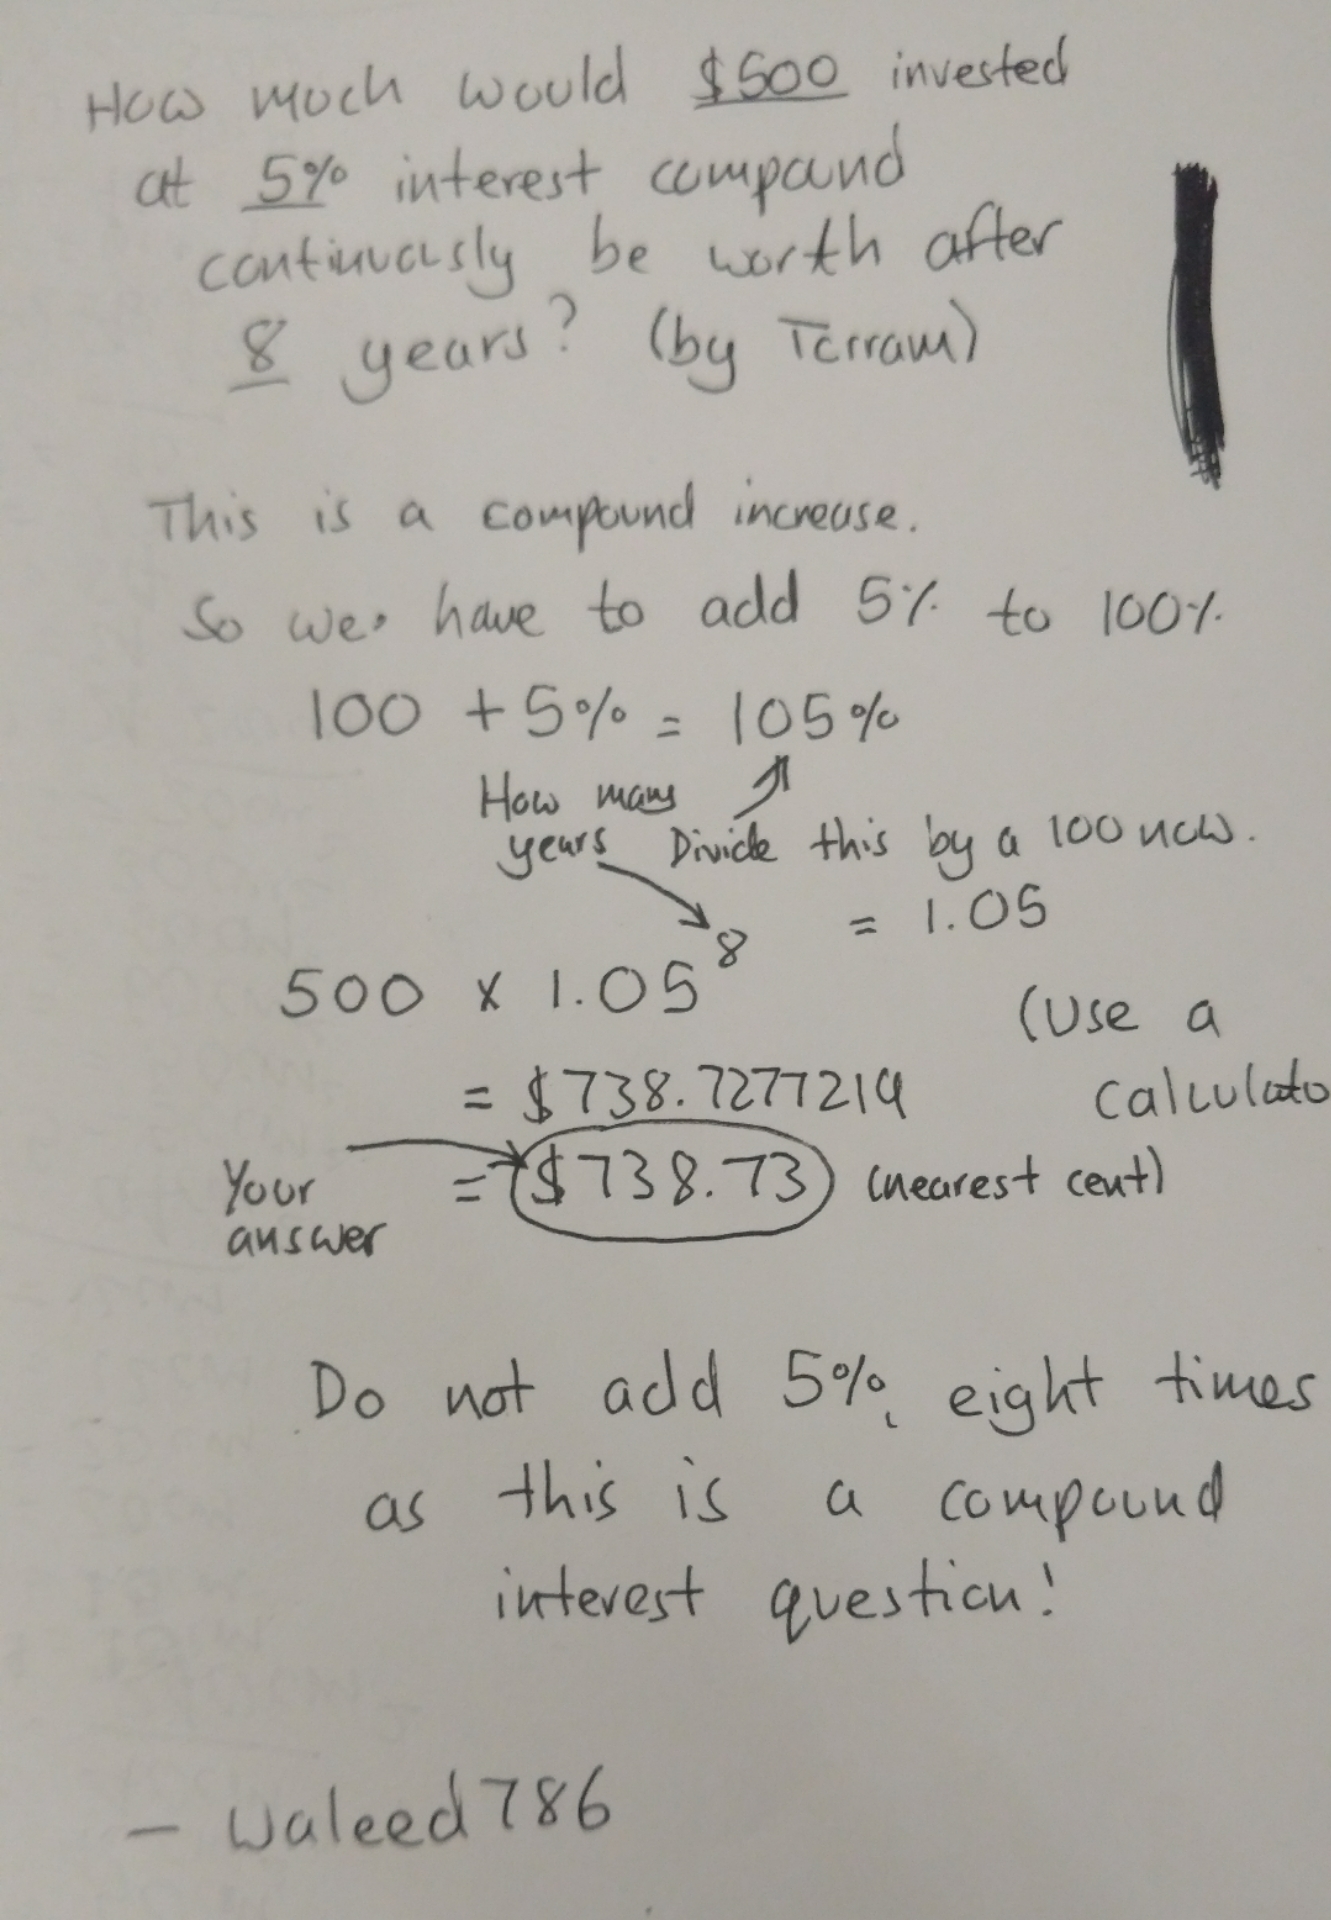 How much would $500 invested
at 5% interest compound
continuously be worth after
8 years? (by Terram)
This is a compound increase.
So we have to add 5% to 100%
100 + 5% = 105%
How many
years
Divide this by a 100 now.
= 1.05
500 x 1.05⁸
(Use a
calculato
= $738.7277219
Your
answer
= $738.73 (nearest cent)
Do not add 5%, eight times
as this is a compound
interest question!
- Waleed786